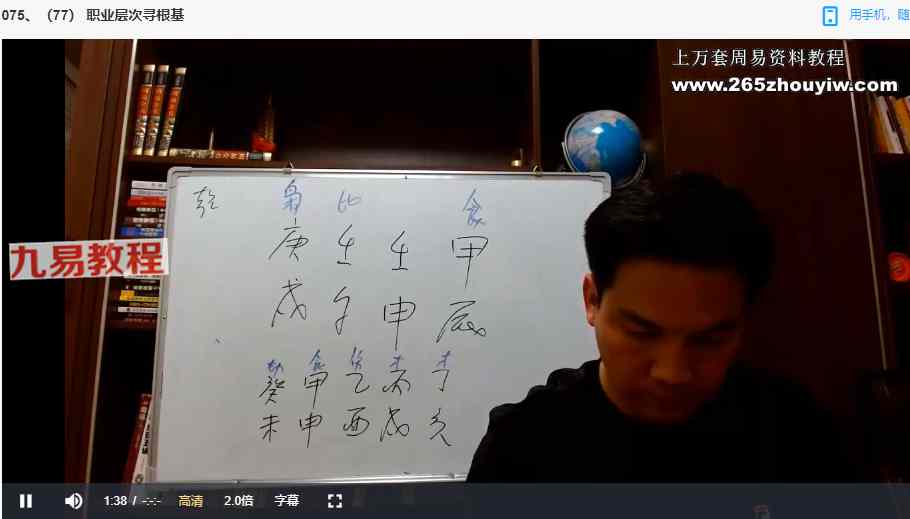 075、（77） 职业层次寻根基
用手机，随
上万套周易资料教程
www.265zhouyiw.com
九易教程
乾 枭 比 食
庚 壬 壬 甲
戌 午 申 辰
劫 食 伤 才 才
癸 甲 乙 丙 丁
未 申 酉 戌 亥
1:38 / -:-:-
高清
2.0倍
字幕